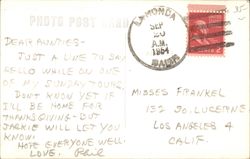 35
PHOTO POST CARD
LA HONDA
SEP
20
A.M.
1954
CALIF.
DEAR AUNTIES-
JUST A LINE TO SAY
HELLO WHILE ON ONE
OF MY SUNDAY TOURS.
DON'T KNOW YET IF
I'LL BE HOME FOR
THANKSGIVING - BUT
JACKIE WILL LET YOU
KNOW.
HOPE EVERYONE WELL.
LOVE. Phil
MISSES FRANKEL
132 SO. LUCERNE
LOS ANGELES 4
CALIF.